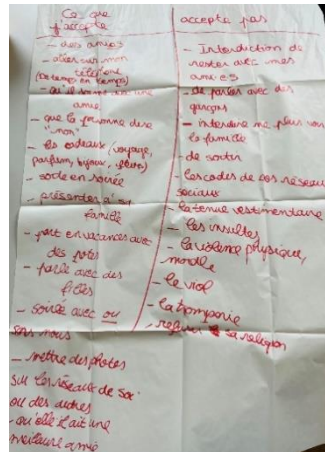 Ce que
j'accepte
- des amies
- aller sur mon
téléphone
(de temps en temps)
- qu'il soupe avec une
amie
- que la personne dise
"non"
- les cadeaux (voyage,
parfum, bijoux, fleurs)
- sorte en soirée
- présenter à sa
famille
- part en vacances avec
des potes
- parle avec des
filles
- soirée avec ou
sans nous
- mettre des photos
sur les réseaux de soi
ou des autres
- qu'elle/il ait une
meilleure amie
accepte pas
- Interdiction de
rester avec mes
amies
- de parler avec des
garçons
- interdire me plus voir
la famille
- de sortir
- les codes de nos réseaux
sociaux
- la tenue vestimentaire
- les insultes
- la violence physique,
morale
- le viol
- la tromperie
- refuser sa religion